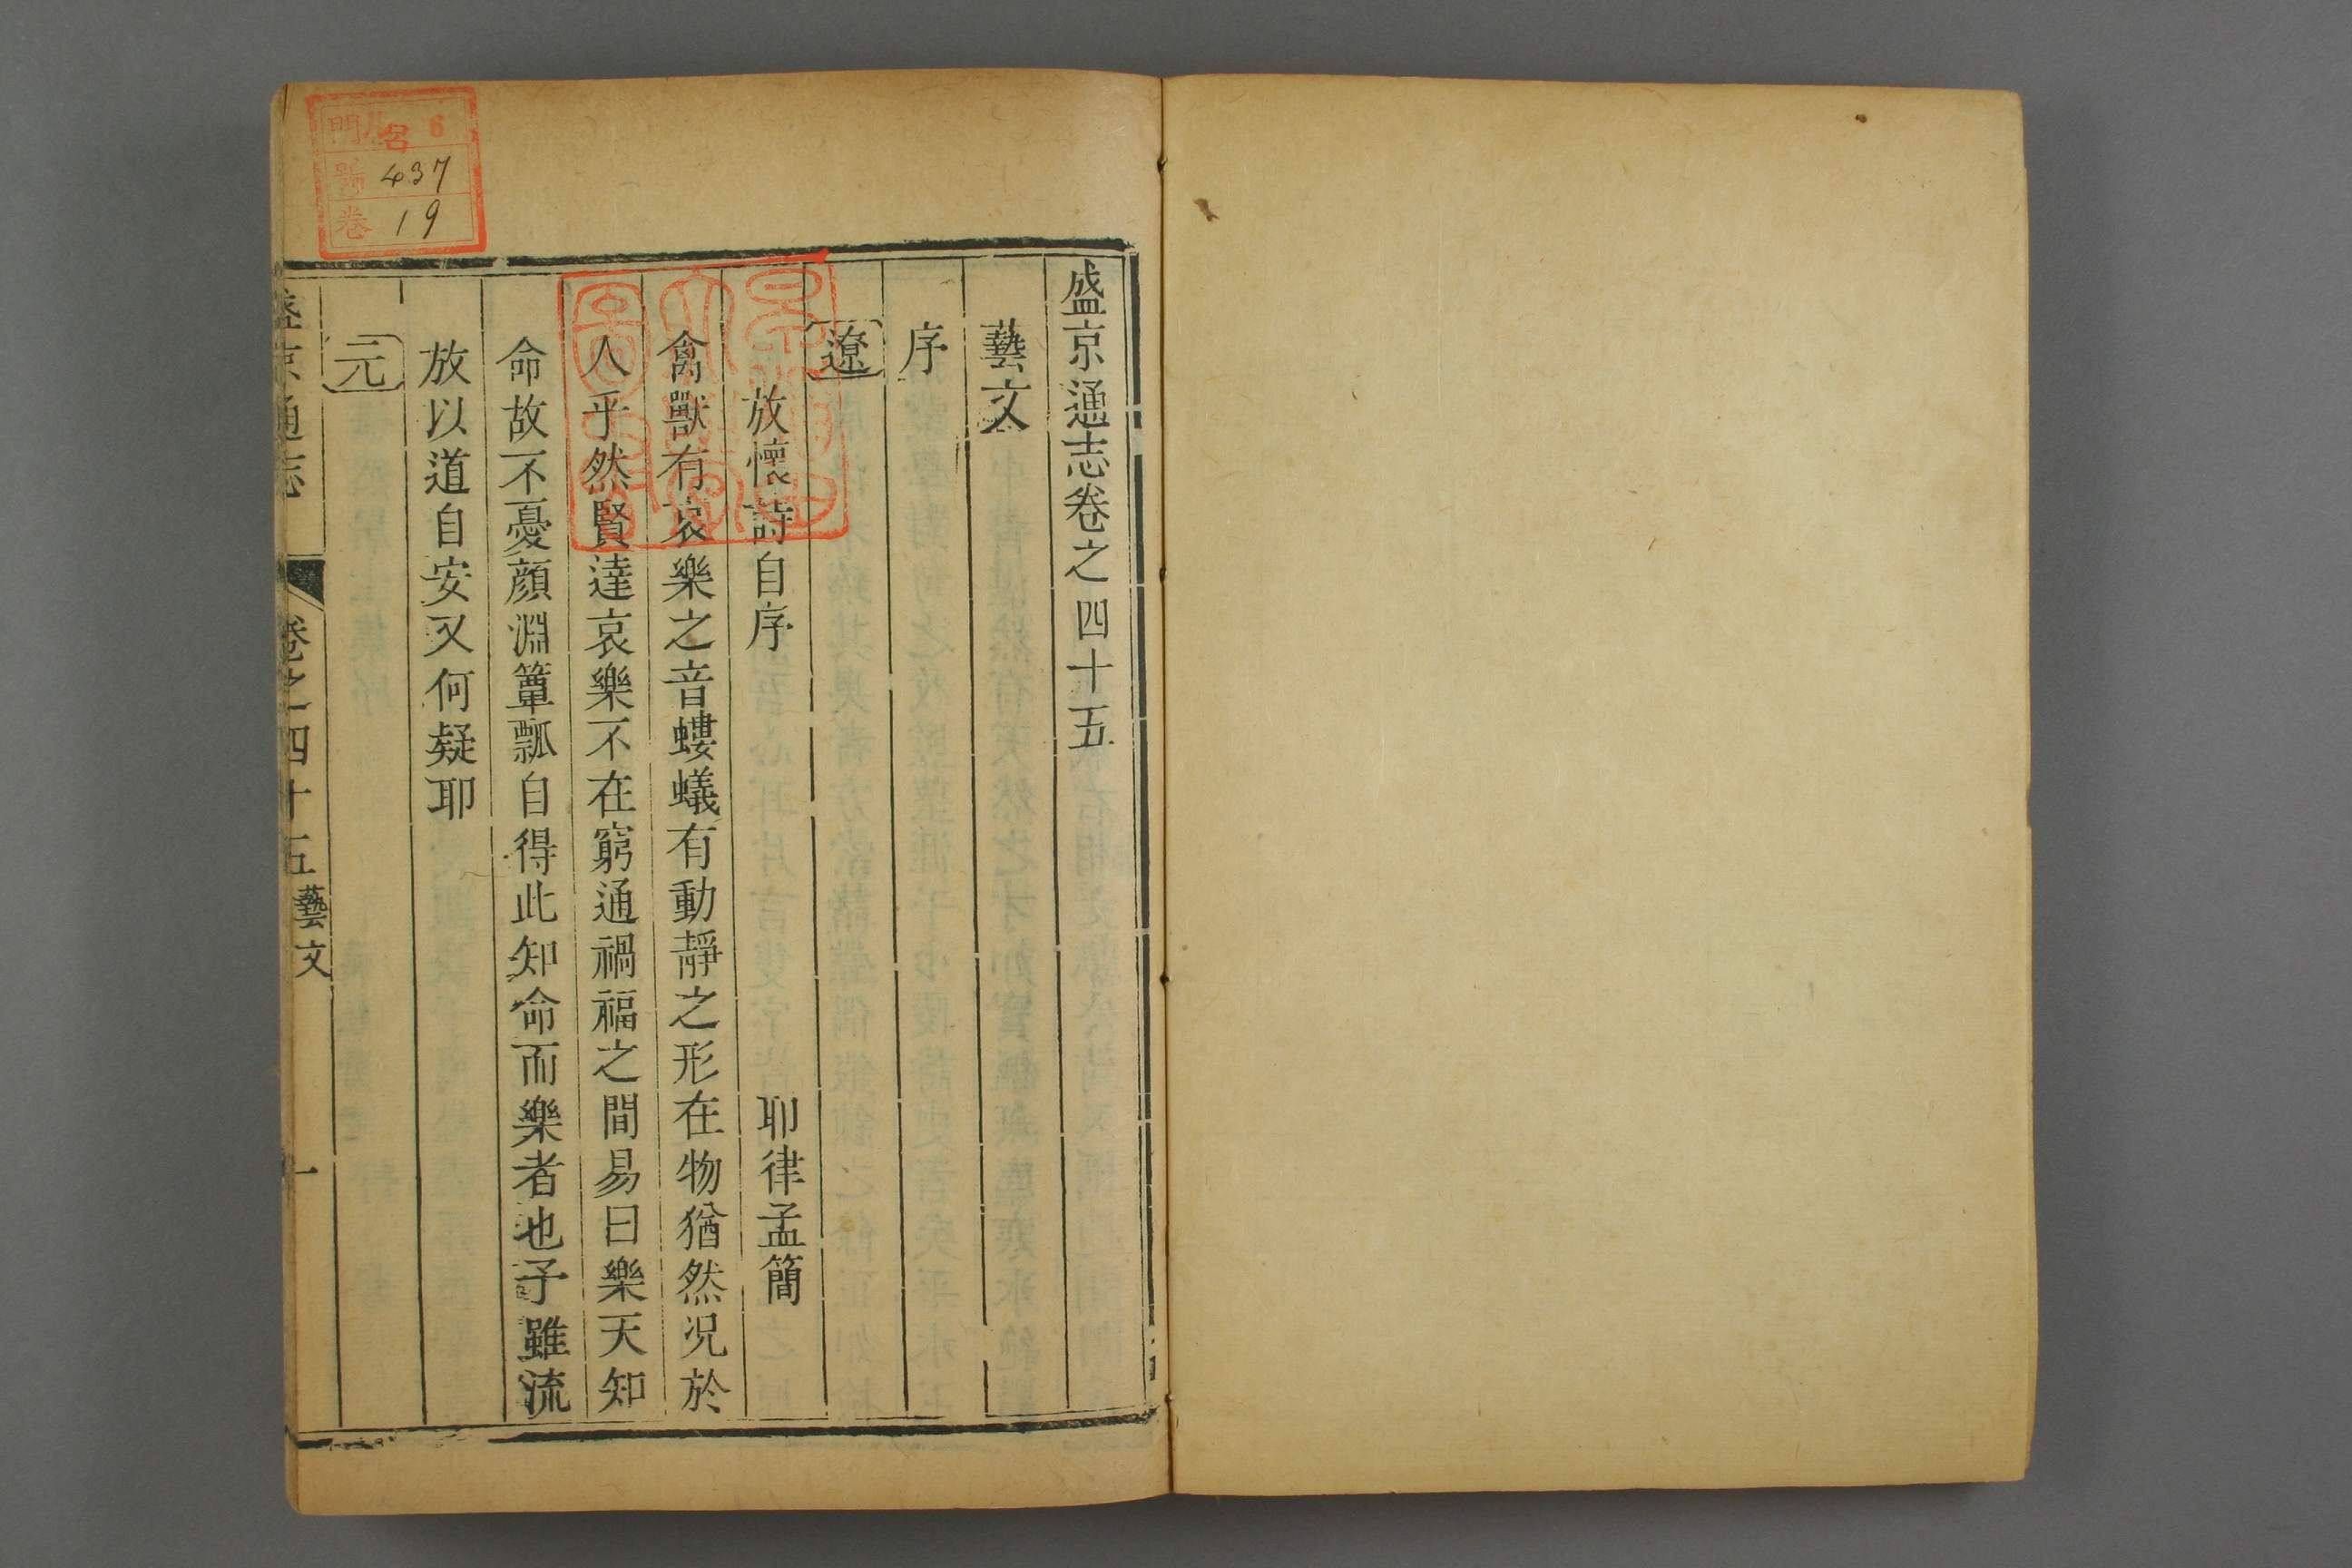 盛京通志卷之四十五
藝文
序
遼
放懷詩自序 耶律孟簡
禽獸有哀樂之音螻蟻有動靜之形在物猶然况於
人乎然賢達哀樂不在窮通禍福之間易曰樂天知
命故不憂顔淵簞瓢自得此知命而樂者也予雖流
放以道自安又何疑耶
元
盛京通志 卷之四十五 藝文 一
門 名 6
號 437
卷 19